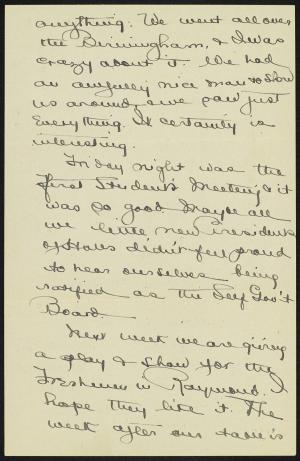 anything. We went all over
the Birmingham, & I was
crazy about it. We had
an awfully nice man to show
us around, & we saw just
everything. It certainly is
interesting.
Friday night was the
first Students Meeting & it
was so good. Maybe all
we little new Presidents
of Halls didn't feel proud
to hear ourselves being
ratified as the Self Gov't
Board.
Next week we are giving
a play & show for the
Freshmen in Raymond. I
hope they like it. The
week after our table is